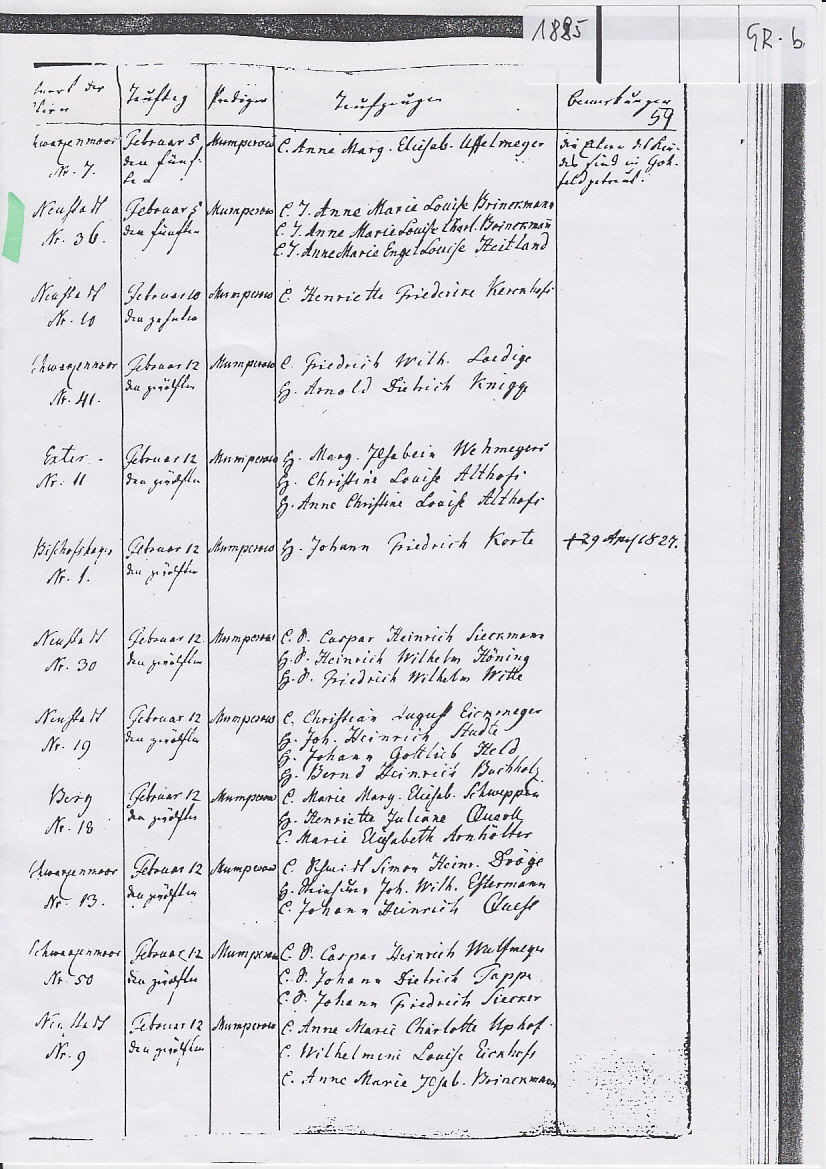 1825 GR. b
Tauftag Prediger Taufzeugen Bemerkungen
59
Nr. 7. Februar 5 den fünften Mumperow C. Anne Marg. Elisab. Uffelmeyer die Eltern des Kindes sind in Gohfeld getraut.
Neustadt Februar 5 Mumperow C. J. Anne Marie Louise Brinckmann
Nr. 36. den fünften C. J. Anne Marie Louise Charl. Brinckmann
C. J. Anne Marie Engel Louise Heitland
Neustadt Februar 10 Mumperow C. Henriette Friederike Kerckhof
Nr. 10 den zehnten
Schwarzenmoor Februar 12 Mumperow C. Friedrich Wilh. Laedige
Nr. 41. den zwölften H. Arnold Dietrich Knigge
Exter Februar 12 Mumperow H. Marg. Ilsabein Wehmeyer
Nr. 11 den zwölften H. Christine Louise Althof
H. Anne Christine Louise Althof
Bischofshagen Februar 12 Mumperow H. Johann Friedrich Korte 1827.
Nr. 1. den zwölften
Neustadt Februar 12 Mumperow C. S. Caspar Heinrich Sieckmann
Nr. 30 den zwölften H. S. Heinrich Wilhelm Höning
H. S. Friedrich Wilhelm Witte
Neustadt Februar 12 Mumperow C. Christian August
Nr. 19 den zwölften H. Joh. Heinrich Stadte
H. Johann Gottlieb Held
H. Bernd Heinrich Buchholz
Berg Februar 12 Mumperow C. Marie Marg. Elisab. Schweppen
Nr. 18 den zwölften H. Henriette Juliane
C. Marie Elisabeth Arnhölter
Schwarzenmoor Februar 12 Mumperow C. Simon Heinr. Dröge
Nr. 13. den zwölften H. Joh. Wilh. Estermann
C. Johann Heinrich Quest
Schwarzenmoor Februar 12 Mumperow C. S. Caspar Heinrich Wulfmeyer
Nr. 50 den zwölften C. S. Johann Dietrich Tappe
C. S. Johann Friedrich Siecker
Neustadt Februar 12 Mumperow C. Anne Marie Charlotte Uphof
Nr. 9 den zwölften C. Wilhelmine Louise Eickhof
C. Anne Marie Ilsab. Brinckmann